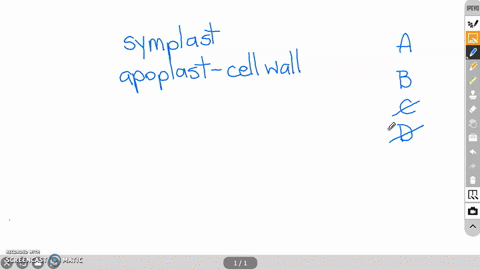 symplast
apoplast - cell wall
A
B
C
D
1 / 1
IPEVO
RECORDED WITH
SCREENCAST MATIC